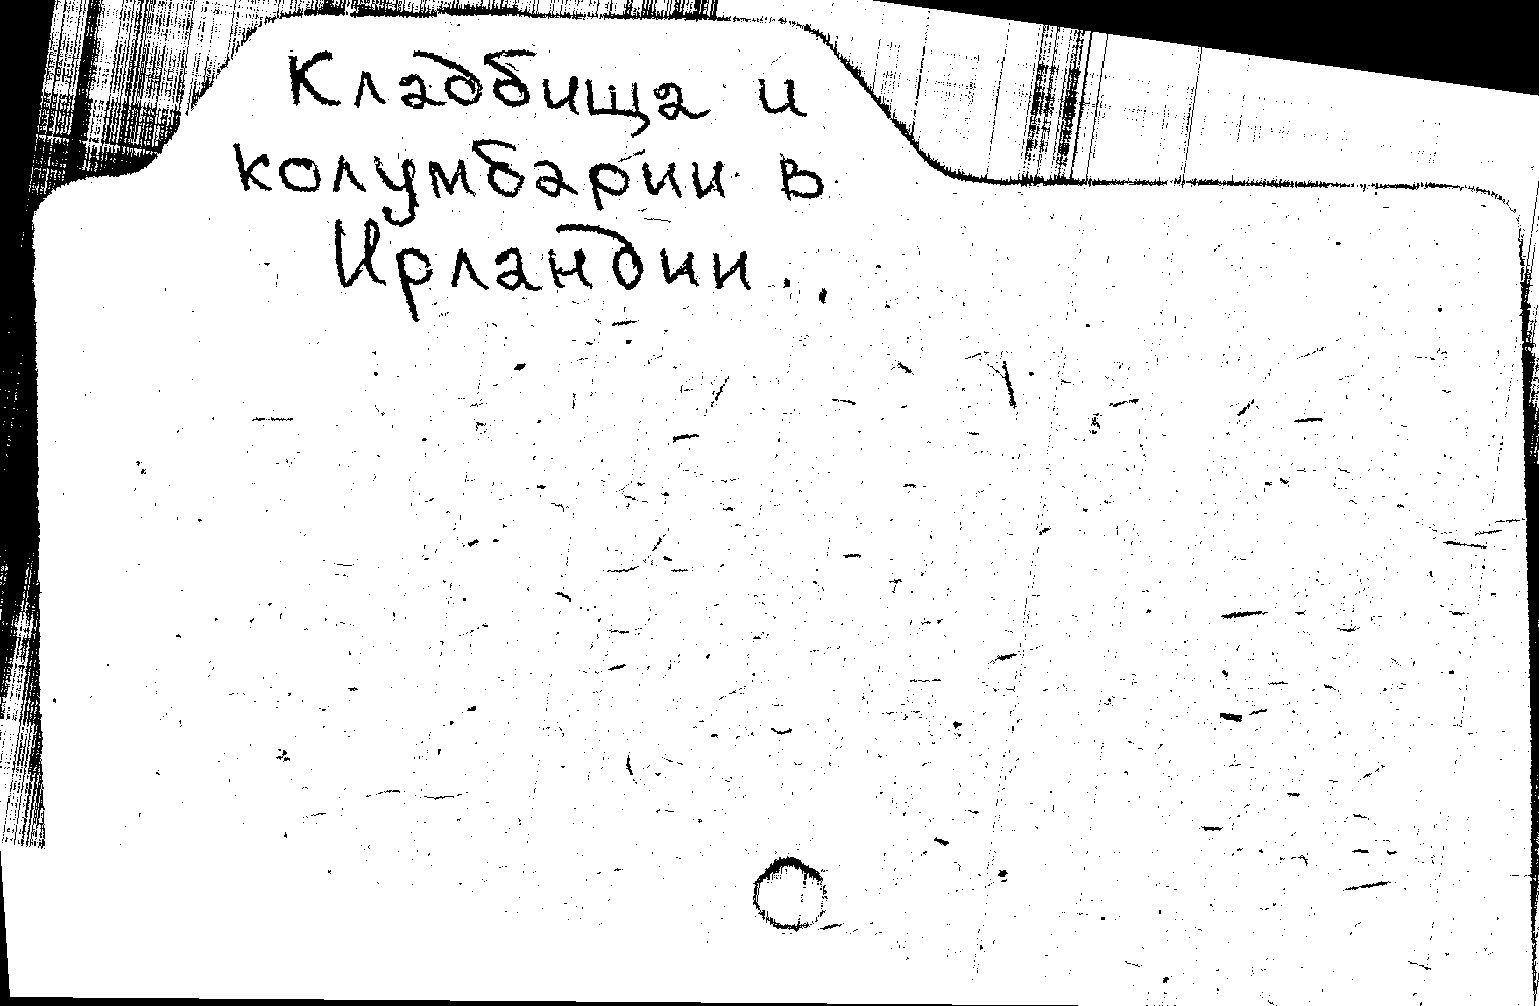 Кладбища и
колумбарии в
Ирландии.